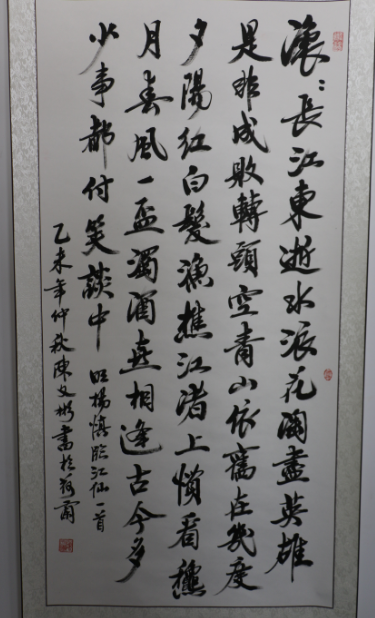 滚〻長江東逝水浪花淘盡英雄
是非成敗轉頭空青山依舊在幾度
夕陽紅白髮漁樵江渚上慣看穐
月春風一盃濁酒喜相逢古今多
少事都付笑談中 明楊慎臨江仙一首
乙未年仲秋陳文彬書於